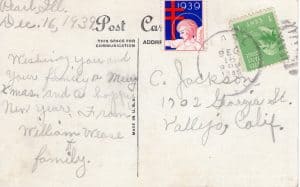 Dec. 16, 1939
Post Car
THIS SPACE FOR
COMMUNICATION
ADDRE
1939
1 CENT 1
DEC
Wishing you and
your family a Merry
Xmas and a happy
New Year, From
William Wease
family.
MADE IN U.S.A.
C. Jackson
1702 Georgia St.
Vallejo, Calif.